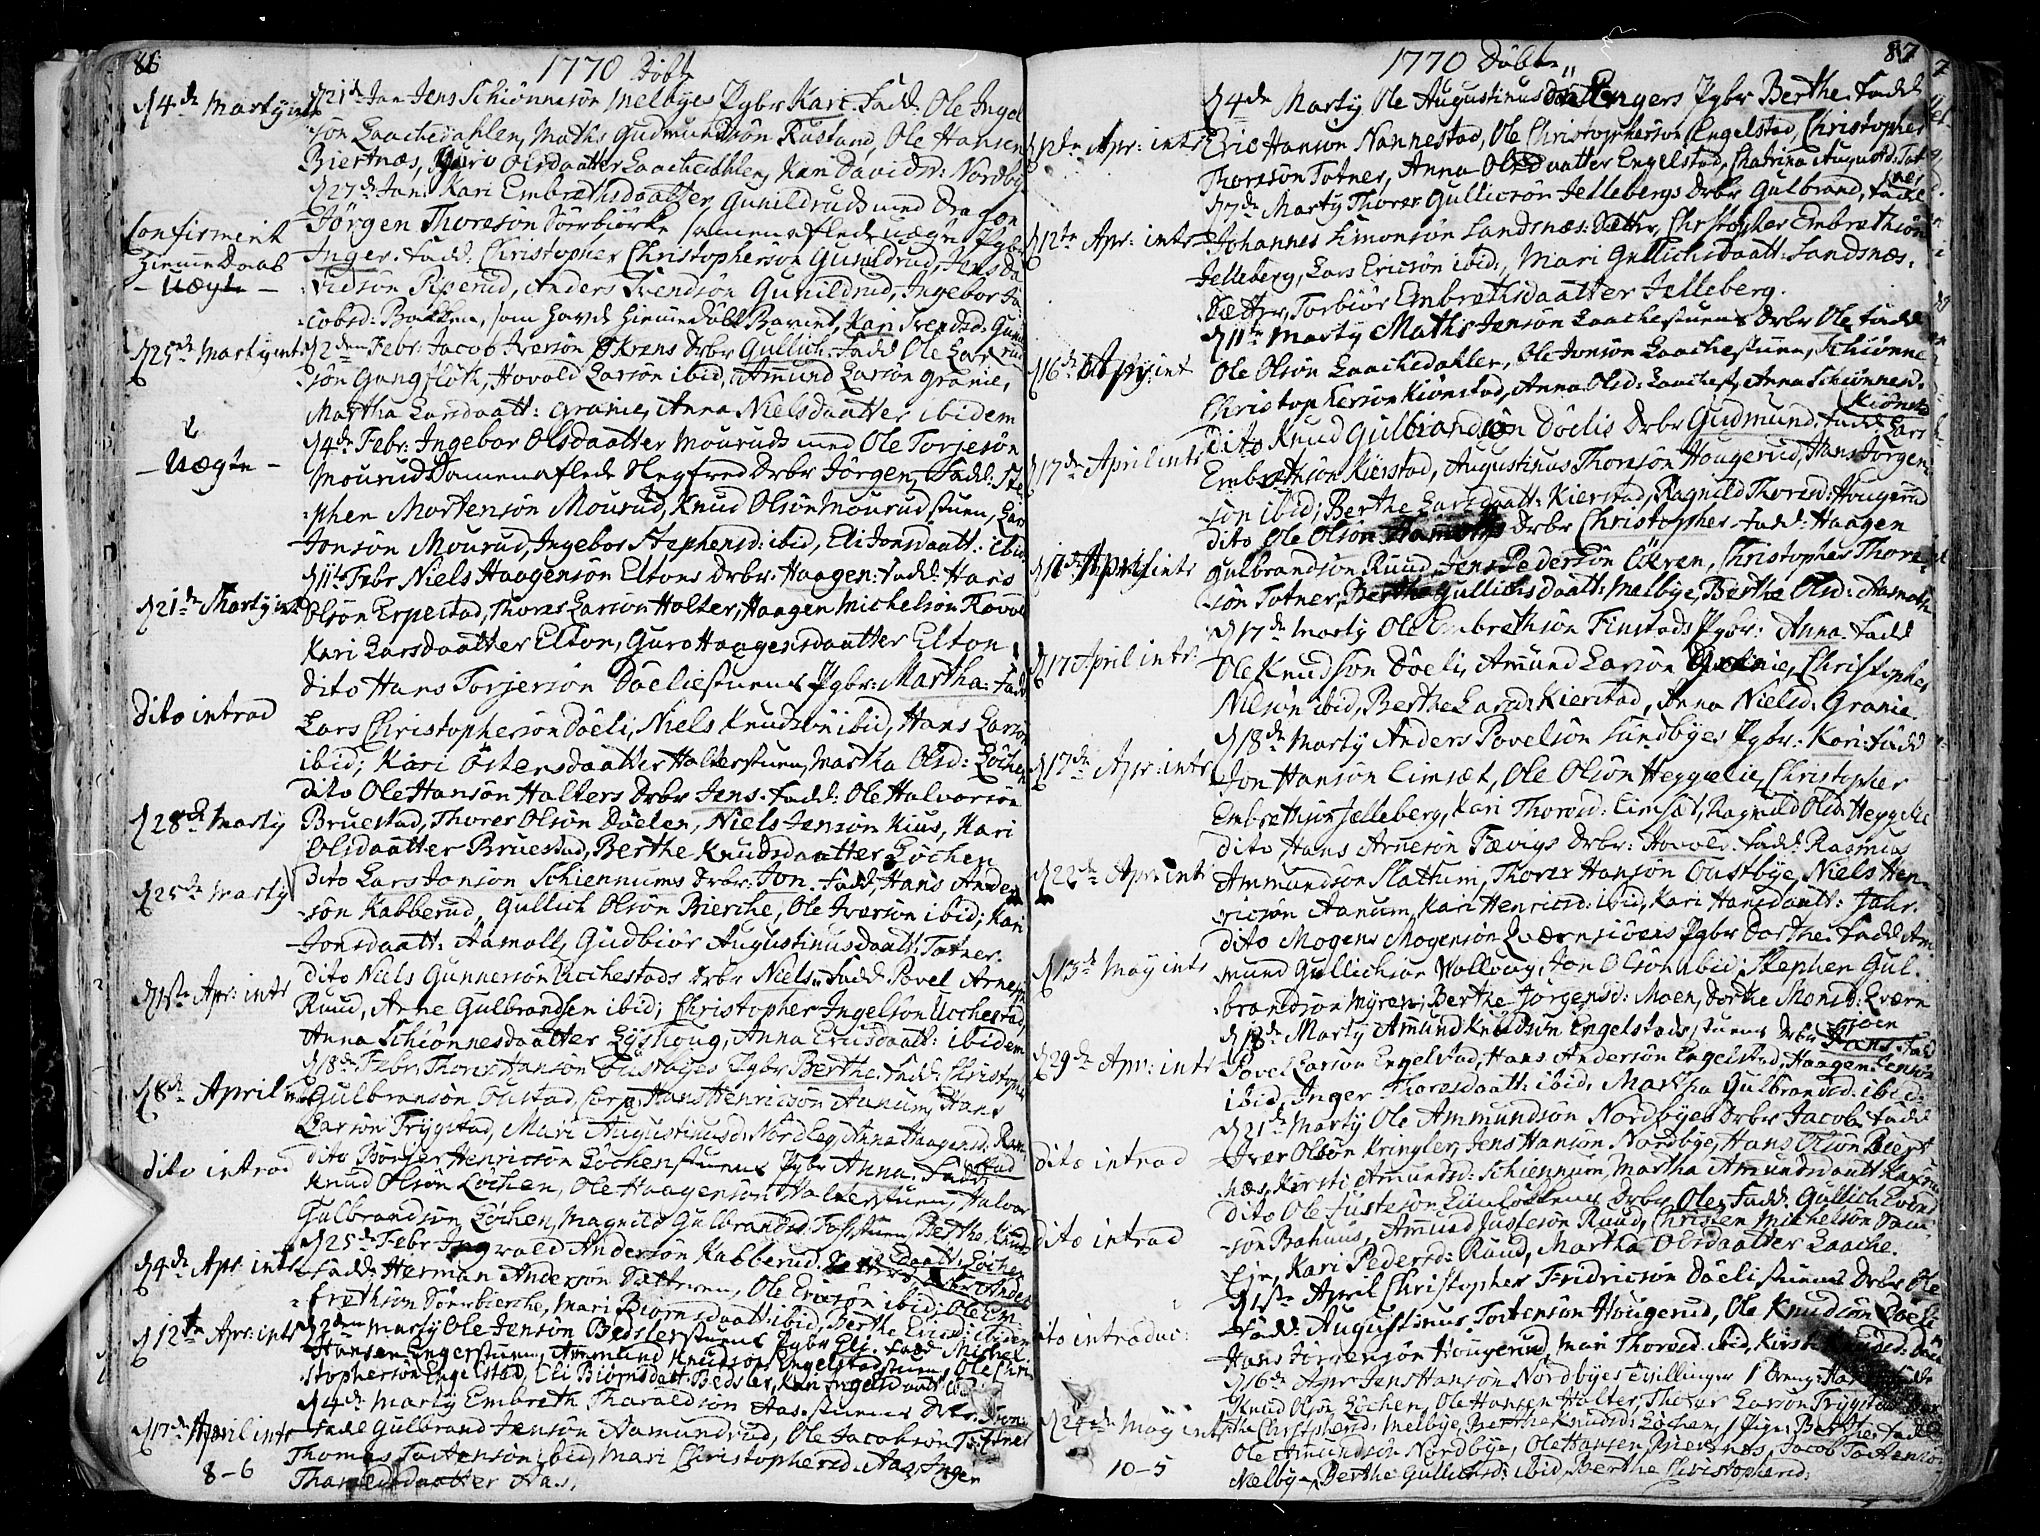 86
1770 Döbt
d 4de Marty int
d 21de Jan Jens Schiönnesön Melbyes Pgbr Kari. Fadd: Ole Ingel
sön Laachedahlen, Maths Gudmundsön Rustand, Ole Hansen
Biertnæs, Guro Olsdaatter Laachedahlen, Davidsd: Nordby
d 27de Jan: Kari Embrethsdaatter Gunildruds med Dragon
Confirment
Hiemme Daab
- Uægte -
Jörgen Thoresön Sörbiörke sammenaflede uægte
Inger. Fadd: Christopher Christophersön Gunildrud, Jens Da
vidsön Piperud, Anders Svendsön Gunildrud, Ingebor Ja
cobsd: Bakken, som havde hiemmedöbt Barnet, Kari Svendsd: Gunild
rud
d 25de Marty int
d 2den Febr: Jacob Iversön Ökrens Drbr Gullich. Fadd Ole Lar
sön Gangfløt, Hovold Larsön ibid, Amund Larsön Granie,
Martha Larsdaatt: Granie, Anna Nielsdaatter ibidem
- Uægte -
d 4de Febr: Ingebor Olsdaatter Mouruds med Ole Torjesön
Mourud sammenaflede Drbr Jörgen, Fadd: Ste
phen Mortensön Mourud, Knud Olsön Mourudstuen, Lars
Jonsön Mourud, Ingebor Stephensd: ibid, Eli Jonsdaatt: ibid
d 21de Marty int
d 11te Febr Niels Haagensön Eltons Drbr: Haagen: Fadd: Hans
Olsön Erpestad, Thorer Larsön Holter, Haagen Michelsön
Kari Larsdaatter Elton, Guro Haagensdaatter Elton
dito introd
dito Hans Torjersön Döeliestuens Pgbr: Martha: Fadd
Lars Christophersön Döeli, Niels Knudsön ibid, Hans Larsön
ibid; Kari Östensdaatter Holterstuen, Martha Olsd: Löchen
d 28de Marty
dito Ole Hansön Holters Drbr Jens. Fadd: Ole Halvorsön
Bruestad, Thorer Olsön Döelen, Niels Jensön Kius, Kari
Olsdaatter Bruestad, Berthe Knudsdaatter Löchen
d 25de Marty
dito Lars Jonsön Schiennums Drbr: Jon. Fadd, Hans Ander
sön Kabberud, Gullich Olsön Bierche, Ole Iversön ibid; Kari
Jonsdaatt: Aamoth, Gudbiör Augustinusdaatt: Totner.
d 1ste Apr: intr
dito Niels Gunnersön Ucchestads Drbr Niels: Fadd: Povel Arnesön
Ruud, Arne Gulbrandsen ibid; Christopher Ingelsön Ucchestad,
Anna Schiönnesdaatter Lyshoug, Anna Ericsdaatt: ibidem
d 8de April int
d 18de Febr: Thorer Hansön Oustbyes Pgbr Berthe. Fadd: Christopher
Gulbransön Oustad, Hans Henricsön Aanum, Hans
Larsön Trygstad, Mari Augustinusd: Nordby, Anna Haagensd: Ram
stad
dito introd
dito Börger Henricsön Löchenstuens Pgbr Anna. Fadd:
Knud Olsön Löchen, Ole Haagensön Holterstuen, Halvor
Gulbrandsön Löchen, Magnild Gulbrandsd: Berthe Knuds
daatt: Löchen
d 4de Apr: intr
d 25de Febr Ingvald Andersön Kabberud Anders
Fadd: Herman Andersön Sættren, Ole Ericsön ibid: Ole Em
brethsön Sönnbierche, Mari Biörnsdaatt: ibid, Berthe Ericsd: ibidem
d 12te Apr: intr
d 2den Marty Ole Jensön Bedslestuens Pgbr Eli. Fadd Michel
Hansen Engerstuen, Ammund Knudsön Engelstadstuen, Ole Chri
stophersön Engelstad, Eli Biörnsdatt: Bedsler, Kari Ingelsdaatt ibid
d 17de April intr
d 4de Marty Embreth Tharaldsön Aas-stuens Drbr
Fadd Gulbrand Jensön Aamundrud, Ole Jacobsön Totner
Thomas Tostensön ibid, Mari Christophersd: Aas, Inger
Tharaldsdaatter Aas,
8-6
87
1770 Döbte
d 12te Apr: intr
d 4de Marty Ole Augustinussön Engers Pgbr Berthe. Fadd
Eric Hansön Nannestad, Ole Christophersön Engelstad, Christopher
Thoresön Totner, Anna Olsdaatter Engelstad, Chatrina Augustd: Tot
ner
d 12te Apr: intr
d 7de Marty Thorer Gullicsön Jellebergs Drbr Gulbrand, Fadd
Johannes Simonsön Sandsnæs: Dætter, Christopher Embrethsön
Jelleberg, Lars Ericsön ibid:, Mari Gullichsdaatt: Sandsnæs.
Dætter, Torbiör Embrethsdaatter Jelleberg.
d 16de Apr: int
d 11te Marty Maths Jensön Laachestuens Drbr Ole, Fadd
Ole Olsön Laachedahlen, Ole Jonsön Laachestuen, Schiönne
Christophersön Kiönstad, Anna Olsd: Laachest, Anna Schiönnesd.
Kiönstad
d 17de April intr
dito Knud Gulbrandsön Döelis Drbr Gudmund. Fadd Lars
Embrethsön Kierstad, Augustinus Thoresön Hougerud, Hans Jörgen
sön ibid; Berthe Larsdaatt: Kierstad, Ragnild Thoresd: Hougerud
d 17de April intr
dito Ole Olsön Drbr Christopher. Fadd: Haagen
Gulbrandsön Ruud, Jens Pedersön Ökren, Christopher Thore
sön Totner, Berthe Gullichsdaatt: Melbye, Berthe Olsd: Aamoth
d 17 April intr:
d 17de Marty Ole Embrethsön Finstads Pgbr: Anna. Fadd
Ole Knudsön Döeli, Amund Larsön Granie, Christopher
Nilsön ibid, Berthe Larsd: Kierstad, Anna Nielsd: Granie.
d 17de Apr: intr
d 18de Marty Anders Povelsön Sundbyes Pgbr: Kari: Fadd
Jon Hansön Limsæt, Ole Olsön Heggelie, Christopher
Embrethsön Jelleberg, Kari Thoresd: Limsæt, Ragnild Olsd: Heggelie
d 22de Apr: intr
dito Hans Arnesön Fævigs Drbr: Hovold. Fadd: Rasmus
Ammundsön Slattum, Thorer Hansön Oustbye, Niels Hen
ricsön Aanum, Kari Henricsd: ibid, Kari Hansdaatt:
d 13de May intr
dito Mogens Mogensön Qværnsiöens Pgbr Dorthe. Fadd Am
mund Gullichsön Wollaug, Jon Olsön ibid; Stephen Gul
brandsön Myren; Berthe Jörgensd: Moen, Dorthe Monsd: Qværn
siöen
d 29de Apr: intr
d 18de Marty Amund Knudsön Engelstads, stuens Drbr Hans. Fadd
Povel Larsön Engelstad, Hans Andersön Engelstad, Haagen Jensön
ibid, Inger Thoresdaatt: ibid, Martha Gulbrandsd: ibid:
dito introd
d 21de Marty Ole Ammundsön Nordbyes Drbr Jacob. Fadd
Iver Olsön Kringler, Jens Hansön Nordbye, Hans Olsön Biert
næs, Kirsti Amundsd: Schiennum, Martha Amundsdaatt
dito introd
dito Ole Justesön Drbr Ole, Fadd: Gullich Evend
sön Bahuus, Amund Justesön Ruud, Christen Michelsön
Eje, Kari Pedersd: Ruud, Martha Olsdaatter Laache.
dito introduc:
d 1ste April Christopher Fridricsön Döelistuens Drbr Ole
Fadd: Augustinus Tostensön Hougerud, Ole Knudsön Döeli
Hans Jörgensön Hougerud, Mari Thoresd: ibid, Kirsti
d 24de May intr
d 16de Apr Jens Hansön Nordbyes Tvillinger 1 Dreng:
Knud Olsön Löchen, Ole Hansen Holter, Thorer Larsön Trygstad
the Christophersd: Melbye, Berthe Knudsd: Löchen, 1 Pige: Berthe. Fadd
Ole Amundsön Nordbye, Ole Hansen Biertnes, Jacob Tostensön
Melbye, Berthe Gullichsd: ibid, Berthe Christophersd:
10-5